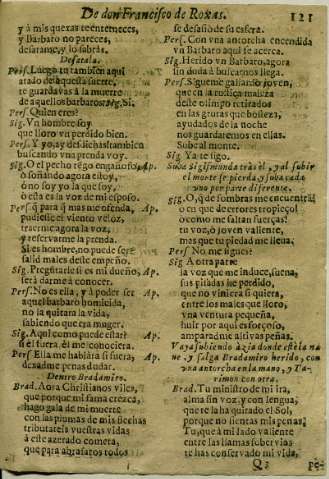 De don Francisco de Roxas. 121
y à mis quexas te enterneces,
y Barbaro no pareces,
desatame, y lo sabràs.
Desatala.
Pers. Luego tu tambien aqui
atado de aquesta suerte,
te guardavas à la muerte
de aquellos barbaros? Sig. Si,
Pers. Quien eres?
Sig. Vn hombre soy
que lloro vn perdido bien.
Pers. Y yo, ay desdichas! tambien
buscando vna prenda voy.
Sig. O el pecho rezo engañoso, Ap.
ò soñando agora estoy,
ò no soy yo la que soy,
ò esta es la voz de mi esposo.
Pers. q̃ para q̃ mas me ofenda, Ap.
pudiesse el viento veloz,
traerme agora la voz,
y reservarme la prenda.
Si es hombre, no puede ser,
salid males deste empeño.
Sig. Pregũtarle si es mi dueño, Ap.
serà darme à conocer.
Pers. No es ella, y à poder ser Ap.
aquel barbaro homicida,
no la quitara la vida,
sabiendo que era muger.
Sig. Aqui como puede estar? Ap.
si èl fuera, èl me conociera.
Pers. Ella me hablàra si fuera, Ap.
dexadme penas dudar.
Dentro Bradamiro.
Brad. Aora Christianos viles,
que porque mi fama crezca,
hago gala de mi muerte
con las plumas de mis flechas
tributareis vuestras vidas
à este azerado cometa,
que para abrasaros todos
se desasiò de su esfera.
Pers. Con vna antorcha encendida
vn Barbaro aqui se acerca.
Sig. Herido vn Barbaro, agora
sin duda à buscarnos llega.
Pers. Sigueme gallardo joven,
que en la rustica maleza
deste olimpo retirados
en las grutas que bosteza,
ayudados de la noche
nos guardaremos en ellas.
Sube al monte.
Sig. Ya te sigo.
Sube Sigismunda tras èl, y al subir
el monte se pierda, y suba cada
uno por parte diferente.
Sig. O, que sombras me encuentra
ò en que de errores tropieço!
ò como me faltan fuerças!
tu voz, ò joven valiente,
mas que tu piedad me lleva,
Pers. No me sigues?
Sig. A otra parte
la voz que me induce, suena,
sus pisadas he perdido,
que no viniera si quiera,
entre los males que lloro,
vna ventura pequeña,
huir por aqui es forçoso,
amparadme altivas peñas.
Vaya subiendo àzia donde està la nu-
ve, y salga Bradamiro herido, con
vna antorcha en la mano, y Ta-
rimon con otra.
Brad. Tu ministro de mi ira,
alma sin voz, y con lengua,
que te la ha quitado el Sol,
porque no sientas mis penas.
Tu, que à mi lado valiente
entre las llamas sobervias
te has conservado mi vida,
Q; pe-